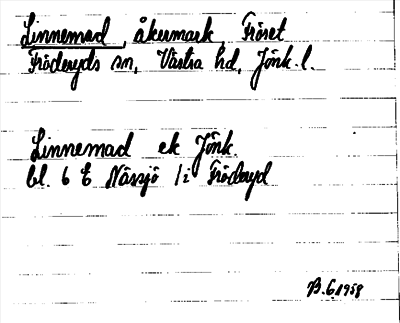 Linnemad, åkermark, Fröset
Fröderyds sn, Västra hd, Jönk. l.
Linnemad ek Jönk.
bl. 6 E Nässjö /i Fröderyd
B.G. 1958